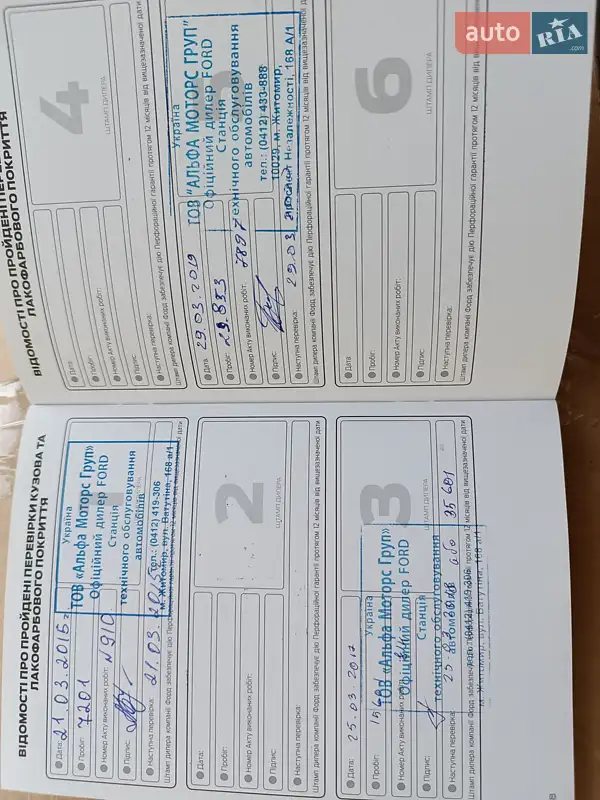 auto RIA .com
ВІДОМОСТІ ПРО ПРОЙДЕНІ ПЕРЕВІРКИ КУЗОВА ТА
ЛАКОФАРБОВОГО ПОКРИТТЯ
1
Україна
ТОВ «Альфа Моторс Груп»
Офіційний дилер FORD
Станція
технічного обслуговування
автомобілів
тел.: (0412) 419-306
м. Житомир, вул. Ватутіна, 168 а/1
Дата: 21.03.2015 г
Пробіг: 7201
Номер Акту виконаних робіт: N910
Підпис:
Наступна перевірка: 21.03.
Штамп дилера компанії Форд забезпечує дію Перфораційної гарантії протягом 12 місяців від вищезазначеної дати
2
ШТАМП ДИЛЕРА
Дата:
Пробіг:
Номер Акту виконаних робіт:
Підпис:
Наступна перевірка:
Штамп дилера компанії Форд забезпечує дію Перфораційної гарантії протягом 12 місяців від вищезазначеної дати
3
ШТАМП ДИЛЕРА
Україна
ТОВ «Альфа Моторс Груп»
Офіційний дилер FORD
Станція
технічного обслуговування
автомобілів
тел.: (0412) 419-306
м. Житомир, вул. Ватутіна, 168 а/1
Дата: 25.03.2017
Пробіг: 15681
Номер Акту виконаних робіт:
Підпис:
Наступна перевірка: або 35681
Штамп дилера компанії Форд забезпечує дію Перфораційної гарантії протягом 12 місяців від вищезазначеної дати
8
ВІДОМОСТІ ПРО ПРОЙДЕНІ
ЛАКОФАРБОВОГО ПОКРИТТЯ
4
ШТАМП ДИЛЕРА
Дата:
Пробіг:
Номер Акту виконаних робіт:
Підпис:
Наступна перевірка:
Штамп дилера компанії Форд забезпечує дію Перфораційної гарантії протягом 12 місяців від вищезазначеної дати
Україна
ТОВ "АЛЬФА МОТОРС ГРУП"
Офіційний дилер FORD
Станція
технічного обслуговування
автомобілів
тел.: (0412) 433-888
10029, м. Житомир,
Незалежності, 168 А/1
Дата: 29.03.2019
Пробіг: 29.853
Номер Акту виконаних робіт: 7897
Підпис:
Наступна перевірка: 29.03
Штамп дилера компанії Форд забезпечує дію Перфораційної гарантії протягом 12 місяців від вищезазначеної дати
6
ШТАМП ДИЛЕРА
Дата:
Пробіг:
Номер Акту виконаних робіт:
Підпис:
Наступна перевірка:
Штамп дилера компанії Форд забезпечує дію Перфораційної гарантії протягом 12 місяців від вищезазначеної дати